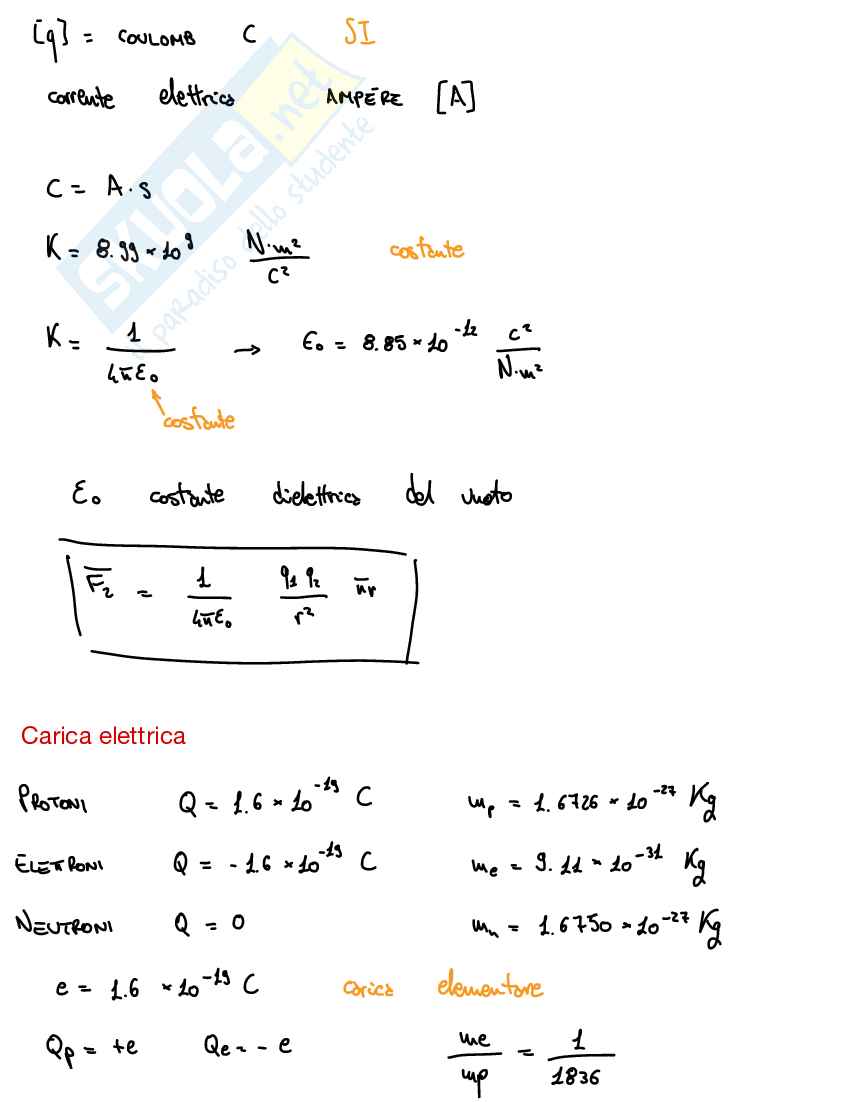 [q] = COULOMB C SI
corrente elettrica AMPÉRE [A]
C = A·s
K = 8.99 × 10⁹ N·m²/C² costante
K = 1/(4πε₀) → ε₀ = 8.85 × 10⁻¹² C²/(N·m²)
costante
ε₀ costante dielettrica del vuoto
F̅₂ = 1/(4πε₀) q₁ q₂/r² u̅r
Carica elettrica
PROTONI Q = 1.6 × 10⁻¹⁹ C mp = 1.6726 × 10⁻²⁷ Kg
ELETTRONI Q = - 1.6 × 10⁻¹⁹ C me = 9.11 × 10⁻³¹ Kg
NEUTRONI Q = 0 mn = 1.6750 × 10⁻²⁷ Kg
e = 1.6 × 10⁻¹⁹ C carica elementare
Qp = +e Qe = - e me/mp = 1/1836
SKUOLA.net
il paradiso dello studente